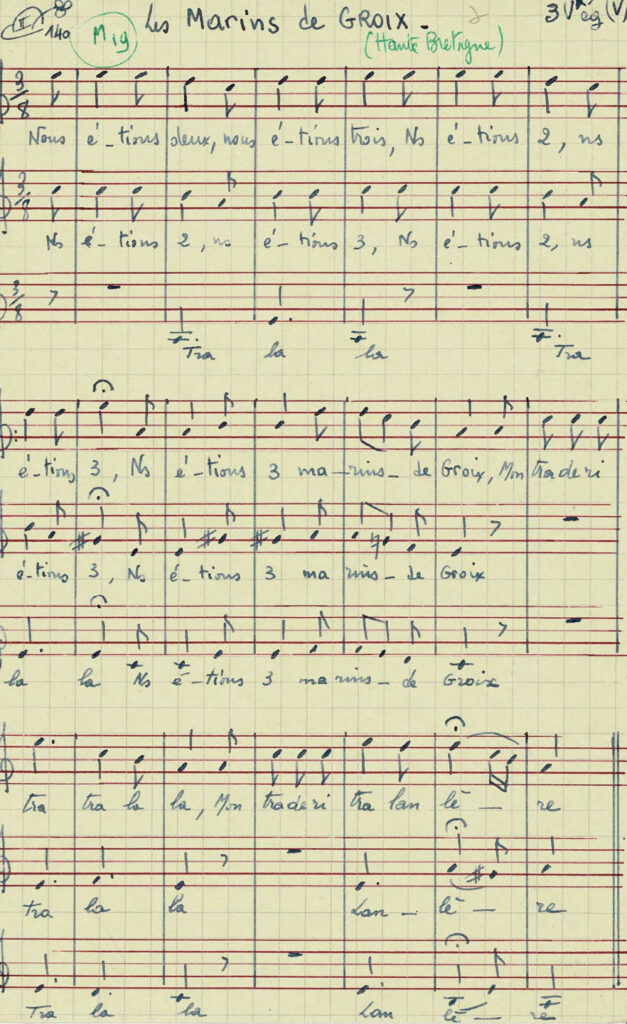 II 140 Mig Les Marins de GROIX. 3 V ég (V)
(Haute Bretagne)
3/8
Nous é-tions deux, nous é-tions trois, Ns é-tions 2, ns
3/8
Ns é-tions 2, ns é-tions 3, Ns é-tions 2, ns
3/8
Tra la la Tra
é-tions 3, Ns é-tions 3 ma-rins-de Groix, Mon traderi
é-tions 3, Ns é-tions 3 ma rins-de Groix
la la Ns é-tions 3 ma rins-de Groix
tra tra la la, Mon traderi tra lan lè-re
tra la la Lan-lè-re
Tra la la Lan lè-re